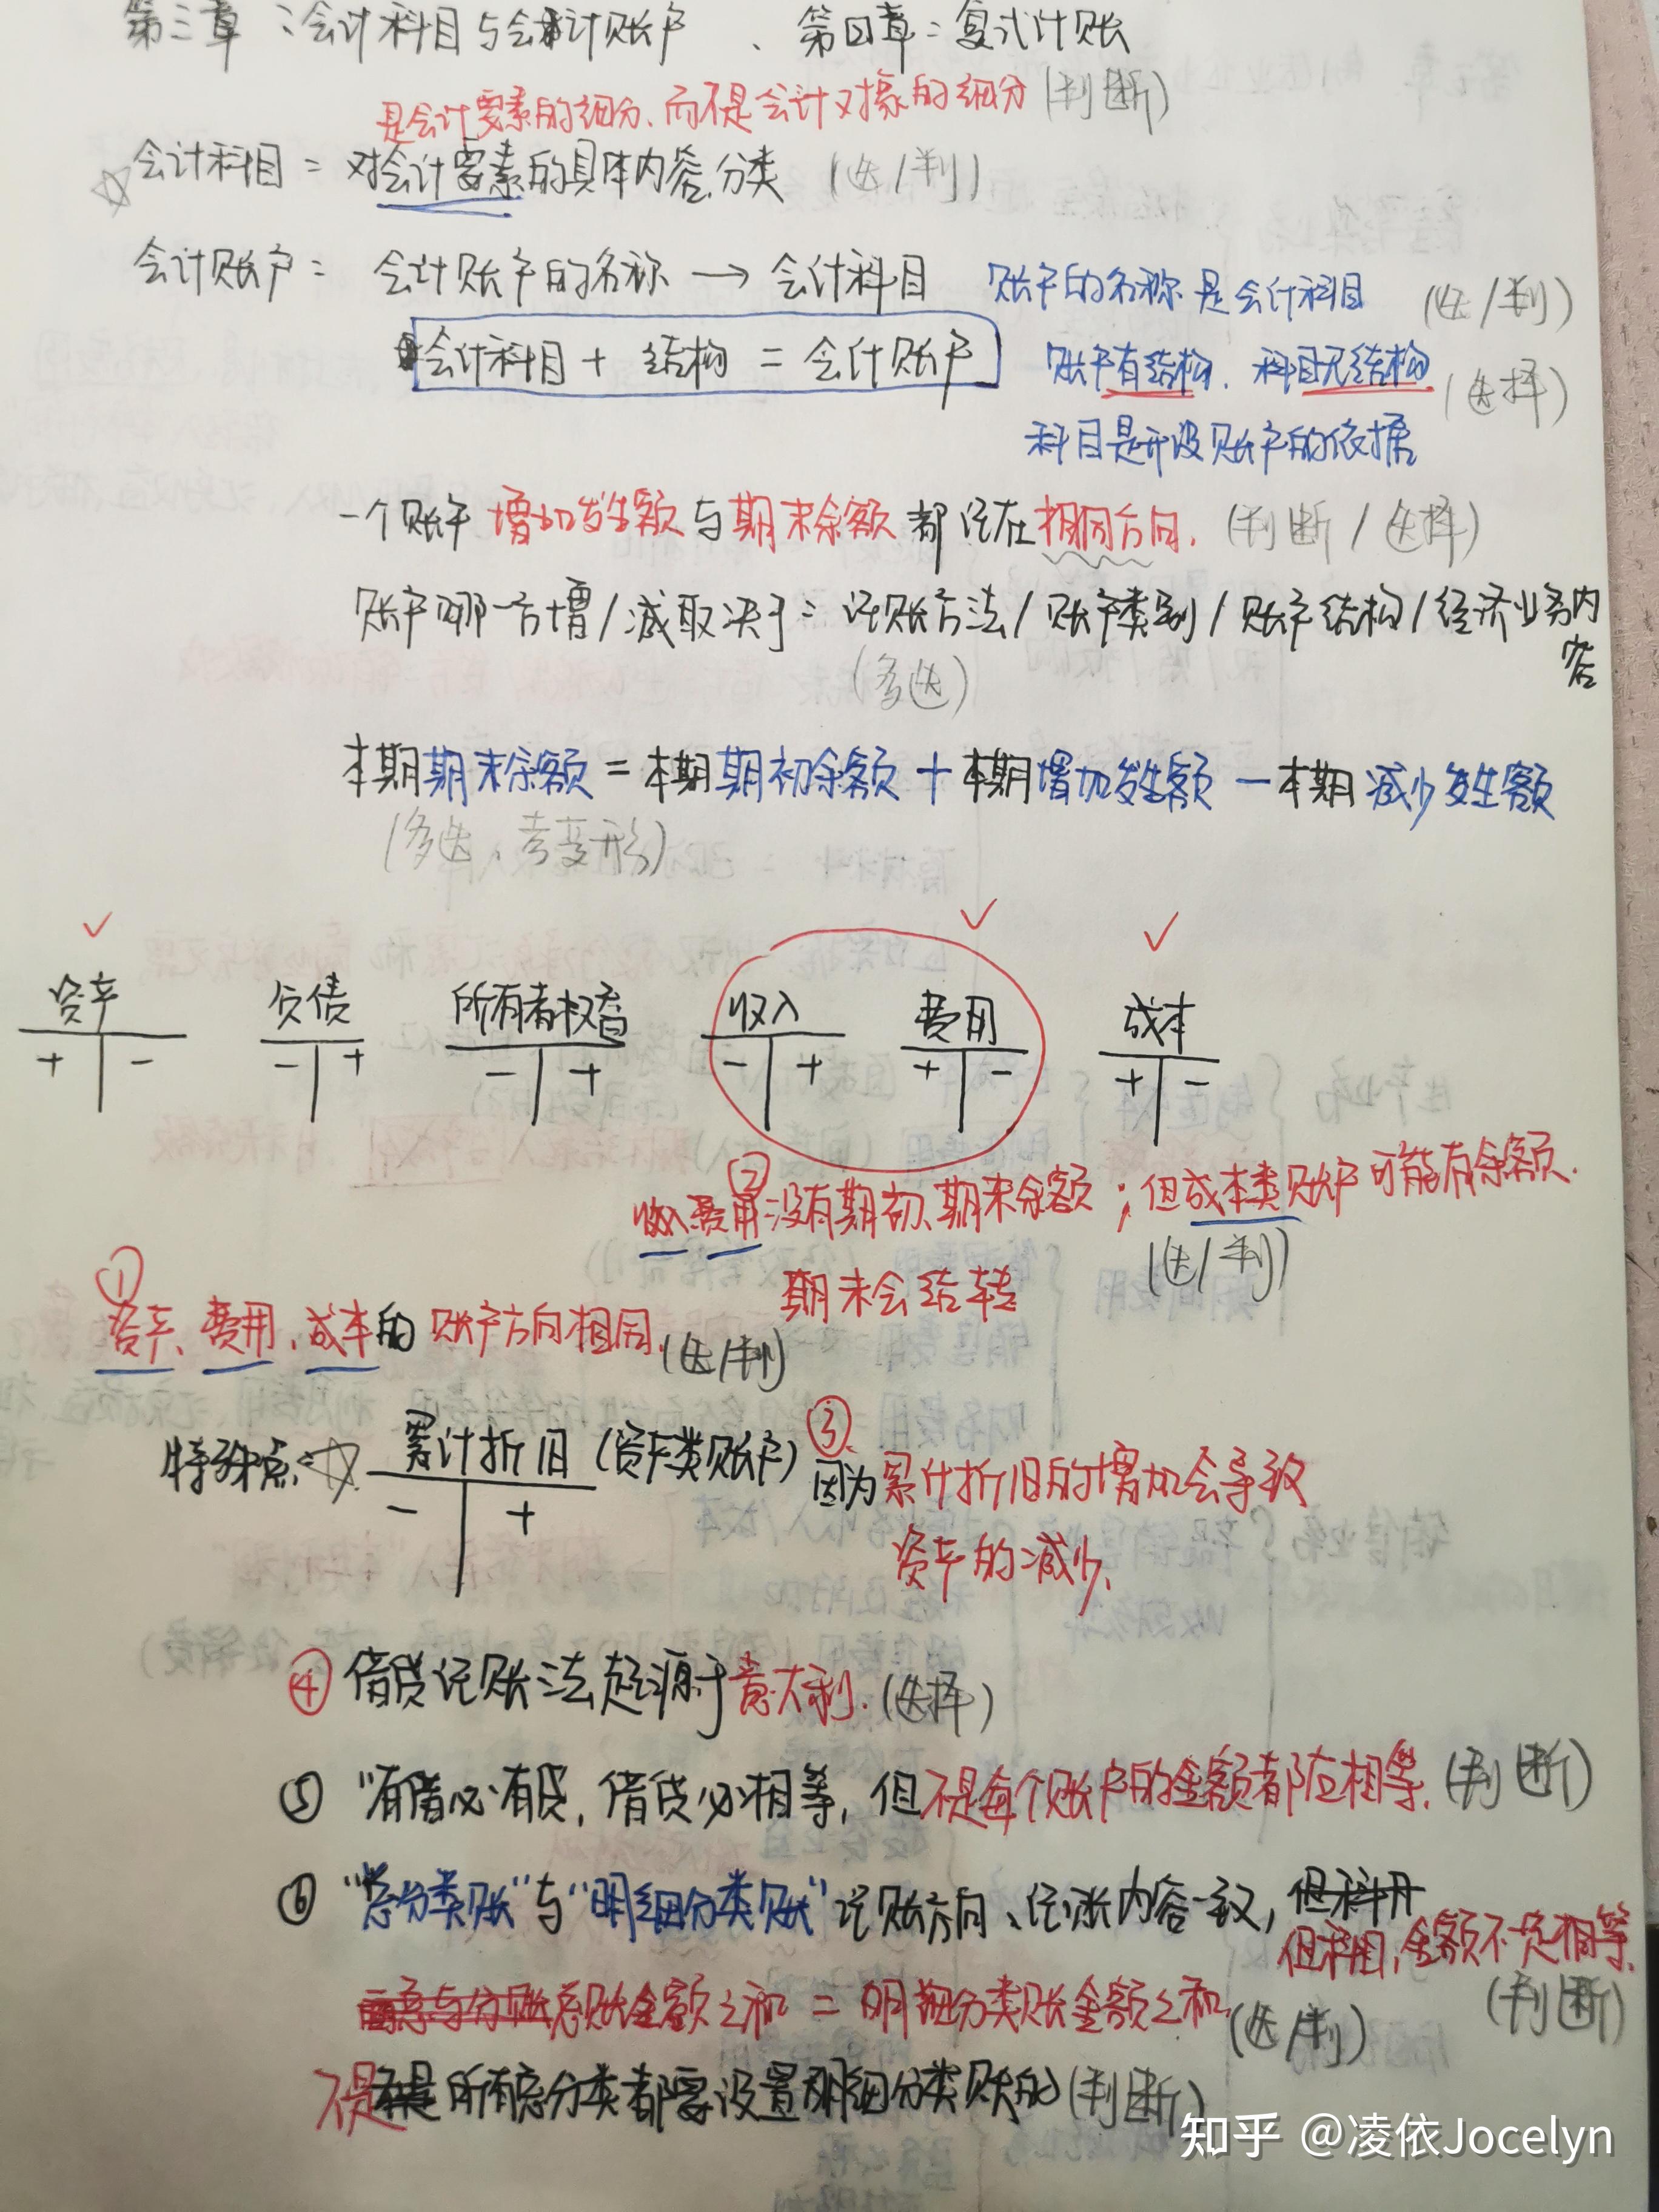 第三章：会计科目与会计账户、第四章：复式计账
是会计要素的细分、而不是会计对象的细分(判断)
☆会计科目= 对会计要素的具体内容分类 (选/判)
会计账户= 会计账户的名称→会计科目 账户的名称是会计科目 (选/判)
会计科目+结构=会计账户 账户有结构、科目无结构 (选择)
科目是开设账户的依据
一个账户增加发生额与期末余额都记在相同方向. (判断/选择)
账户哪一方增/减取决于：记账方法/账户类别/账户结构/经济业务内容
(多选)
本期期末余额=本期期初余额+本期增加发生额-本期减少发生额
(多选、考变形)
✓ ✓ ✓
资产 负债 所有者权益 收入 费用 成本
+ - - + - + - + + - + -
② 收入费用没有期初、期末余额；但成本类账户可能有余额.
(选/判)
期末会结转
①
资产、费用、成本的账户方向相同.(选/判)
特殊点：☆ 累计折旧(资产类账户) ③因为累计折旧的增加会导致
- +
资产的减少.
④ 借贷记账法起源于意大利.(选择)
⑤ "有借必有贷，借贷必相等，但不是每个账户的金额都应相等.(判断)
⑥ "总分类账"与"明细分类账"记账方向、记账内容一致，
金额不一定相等.
(判断)
总账金额之和=明细分类账金额之和 (选/判)
不是所有总分类都要设置明细分类账的(判断)
知乎 @凌依Jocelyn